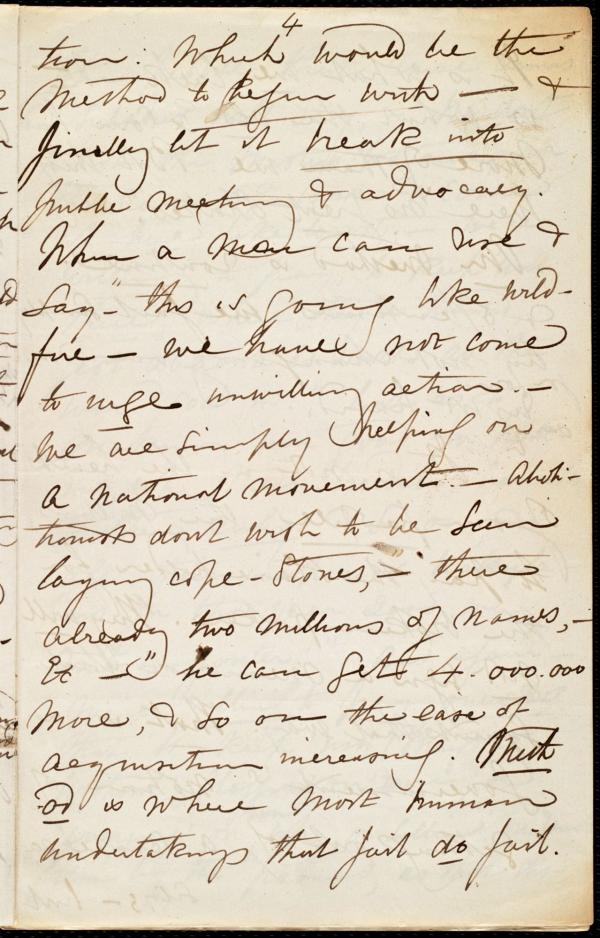 4
tion: Which would be the
Method to begin with — &
finally let it break into
public meeting & advocacy.
When a man can rise &
say - "this is going like wild-
fire — we have not come
to urge unwilling action. —
We are simply helping on
a national movement — Aboli-
tionists dont wish to be seen
laying cope-stones, — there
already two millions of names, —
&c —" he can get 4.000.000
more, & so on the ease of
acquisition increasing. Meth
od is where most human
undertakings that fail do fail.